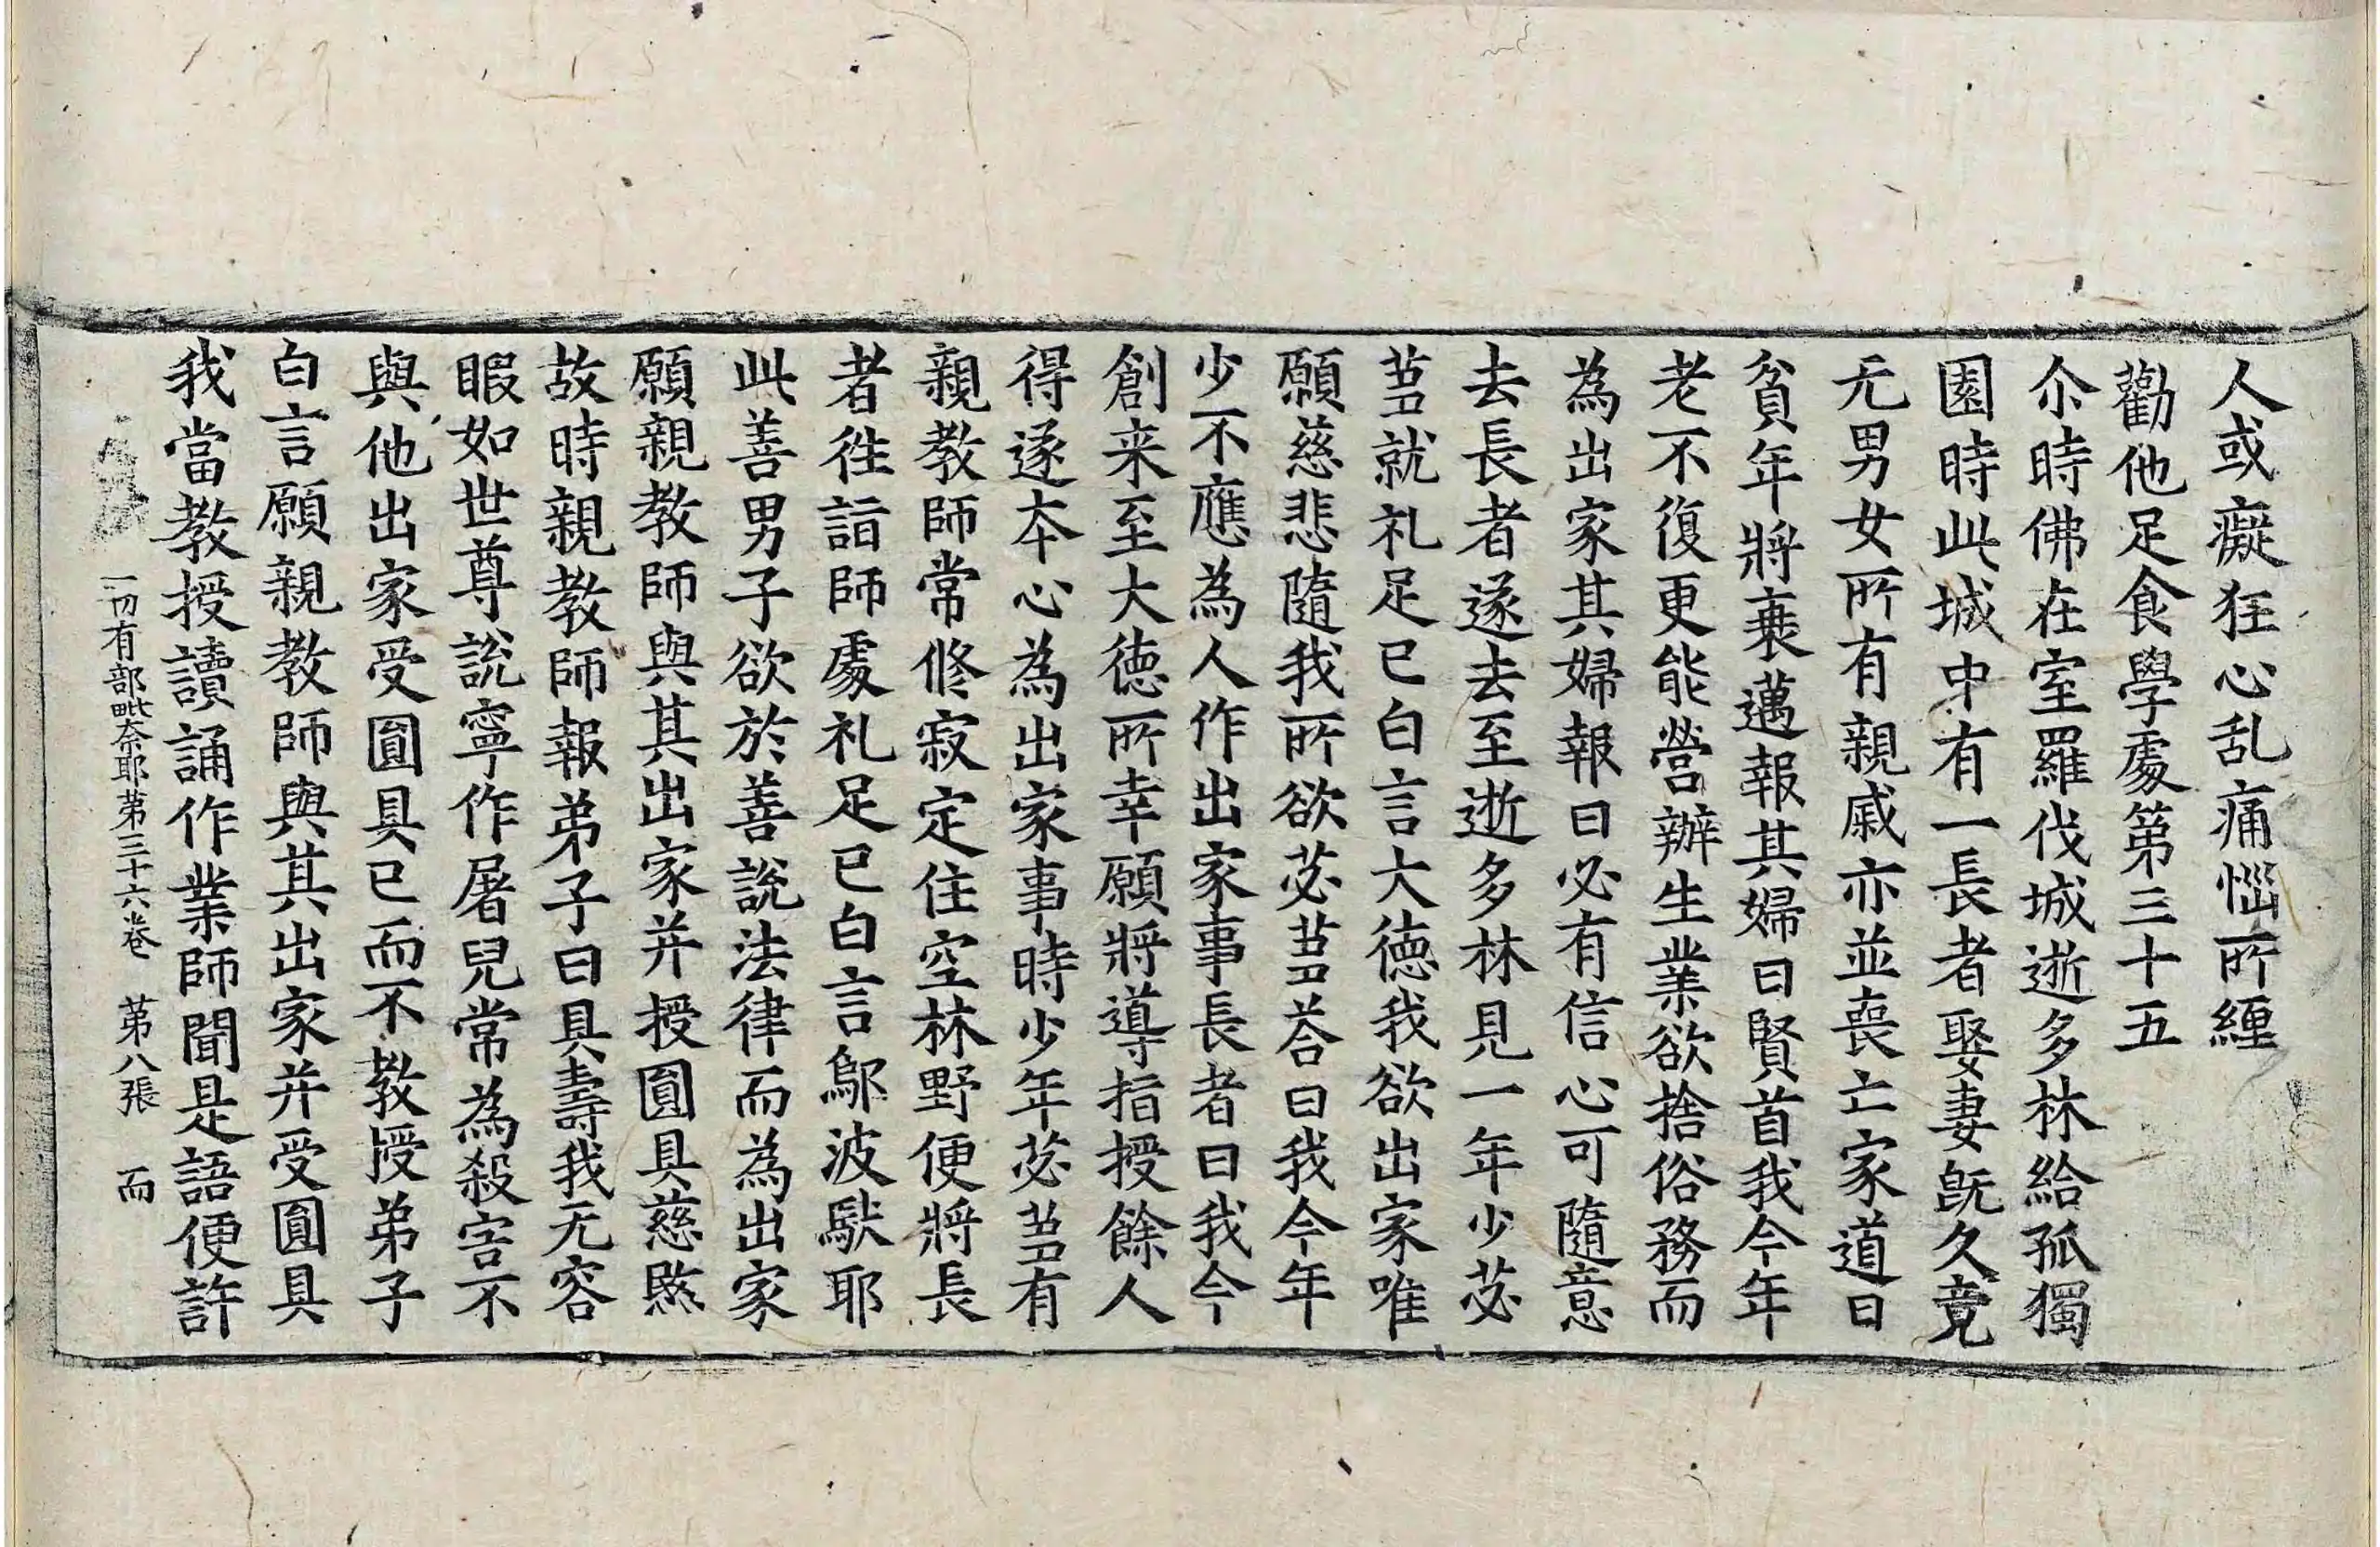 人或癡狂心乱痛惱所纏
勸他足食學處第三十五
尒時佛在室羅伐城逝多林給孤獨
園時此城中有一長者娶妻旣久竟
无男女所有親戚亦並喪亡家道日
貧年將衰邁報其婦曰賢首我今年
老不復更能營辦生業欲捨俗務而
為出家其婦報曰必有信心可隨意
去長者遂去至逝多林見一年少苾
芻就礼足已白言大德我欲出家唯
願慈悲隨我所欲苾芻荅曰我今年
少不應為人作出家事長者曰我今
創来至大德所幸願將導指授餘人
得遂本心為出家事時少年苾芻有
親教師常修寂定住空林野便將長
者往詣師處礼足已白言鄔波馱耶
此善男子欲於善說法律而為出家
願親教師與其出家并授圓具慈愍
故時親教師報弟子曰具壽我无容
暇如世尊說寧作屠兒常為殺害不
與他出家受圓具已而不教授弟子
白言願親教師與其出家并受圓具
我當教授讀誦作業師聞是語便許
一切有部毗奈耶第三十六卷 第八張 而